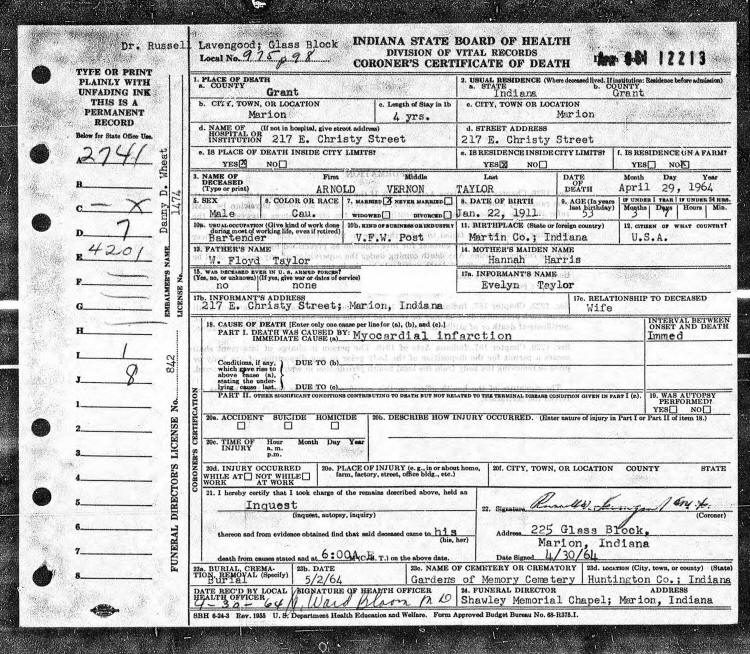 Dr. Russell Lavengood; Glass Block
Local No. 975 p 98
INDIANA STATE BOARD OF HEALTH
DIVISION OF VITAL RECORDS
CORONER'S CERTIFICATE OF DEATH
12213
TYPE OR PRINT
PLAINLY WITH
UNFADING INK
THIS IS A
PERMANENT
RECORD
Below for State Office Use.
A 2741
B
C — X
D 7
E 4201
F
G
H
I 1
J 8
1
2
3
4
5
6
7
8
EMBALMER'S NAME Danny D. Wheat
LICENSE No. 1474
FUNERAL DIRECTOR'S LICENSE No. 842
CORONER'S CERTIFICATION
1. PLACE OF DEATH
a. COUNTY
Grant
2. USUAL RESIDENCE (Where deceased lived. If institution: Residence before admission)
a. STATE b. COUNTY
Indiana Grant
b. CITY, TOWN, OR LOCATION
Marion
c. Length of Stay in 1b
4 yrs.
c. CITY, TOWN, OR LOCATION
Marion
d. NAME OF HOSPITAL OR INSTITUTION (If not in hospital, give street address)
217 E. Christy Street
d. STREET ADDRESS
217 E. Christy Street
e. IS PLACE OF DEATH INSIDE CITY LIMITS?
YES☒ NO☐
e. IS RESIDENCE INSIDE CITY LIMITS?
YES☒ NO☐
f. IS RESIDENCE ON A FARM?
YES☐ NO☒
3. NAME OF DECEASED (Type or print)
First Middle Last
ARNOLD VERNON TAYLOR
DATE OF DEATH
Month Day Year
April 29, 1964
5. SEX
Male
6. COLOR OR RACE
Cau.
7. MARRIED ☒ NEVER MARRIED ☐
WIDOWED ☐ DIVORCED ☐
8. DATE OF BIRTH
Jan. 22, 1911
9. AGE (In years last birthday)
53
IF UNDER 1 YEAR IF UNDER 24 HRS.
Months Days Hours Min.
3 7
10a. USUAL OCCUPATION (Give kind of work done during most of working life, even if retired)
Bartender
10b. KIND OF BUSINESS OR INDUSTRY
V.F.W. Post
11. BIRTHPLACE (State or foreign country)
Martin Co.; Indiana
12. CITIZEN OF WHAT COUNTRY?
U.S.A.
13. FATHER'S NAME
W. Floyd Taylor
14. MOTHER'S MAIDEN NAME
Hannah Harris
15. WAS DECEASED EVER IN U. S. ARMED FORCES?
(Yes, no, or unknown) (If yes, give war or dates of service)
no none
17a. INFORMANT'S NAME
Evelyn Taylor
17b. INFORMANT'S ADDRESS
217 E. Christy Street; Marion, Indiana
17c. RELATIONSHIP TO DECEASED
Wife
18. CAUSE OF DEATH [Enter only one cause per line for (a), (b), and (c).]
PART I. DEATH WAS CAUSED BY:
IMMEDIATE CAUSE (a) Myocardial infarction
INTERVAL BETWEEN ONSET AND DEATH
Immed
Conditions, if any, which gave rise to above cause (a), stating the underlying cause last.
DUE TO (b)
DUE TO (c)
PART II. OTHER SIGNIFICANT CONDITIONS CONTRIBUTING TO DEATH BUT NOT RELATED TO THE TERMINAL DISEASE CONDITION GIVEN IN PART I (a).
19. WAS AUTOPSY PERFORMED?
YES☐ NO☐
20a. ACCIDENT SUICIDE HOMICIDE
☐ ☐ ☐
20b. DESCRIBE HOW INJURY OCCURRED. (Enter nature of injury in Part I or Part II of item 18.)
20c. TIME OF INJURY
Hour Month Day Year
a. m.
p.m.
20d. INJURY OCCURRED
WHILE AT WORK ☐ NOT WHILE AT WORK ☐
20e. PLACE OF INJURY (e. g., in or about home, farm, factory, street, office bldg., etc.)
20f. CITY, TOWN, OR LOCATION COUNTY STATE
21. I hereby certify that I took charge of the remains described above, held an
Inquest
(inquest, autopsy, inquiry)
thereon and from evidence obtained find that said deceased came to his
(his, her)
death from causes stated and at 6:00A on the above date.
22. Signature
(Coroner)
Address 225 Glass Block,
Marion, Indiana
Date Signed 4/30/64
23a. BURIAL, CREMATION, REMOVAL (Specify)
Burial
23b. DATE
5/2/64
23c. NAME OF CEMETERY OR CREMATORY
Gardens of Memory Cemetery
23d. LOCATION (City, town, or county) (State)
Huntington Co.; Indiana
DATE REC'D BY LOCAL HEALTH OFFICER
4-30-64
SIGNATURE OF HEALTH OFFICER
Ward Bloom M D
24. FUNERAL DIRECTOR ADDRESS
Shawley Memorial Chapel; Marion, Indiana
SBH 6-24-3 Rev. 1955 U. S. Department Health Education and Welfare. Form Approved Budget Bureau No. 68-R375.1.